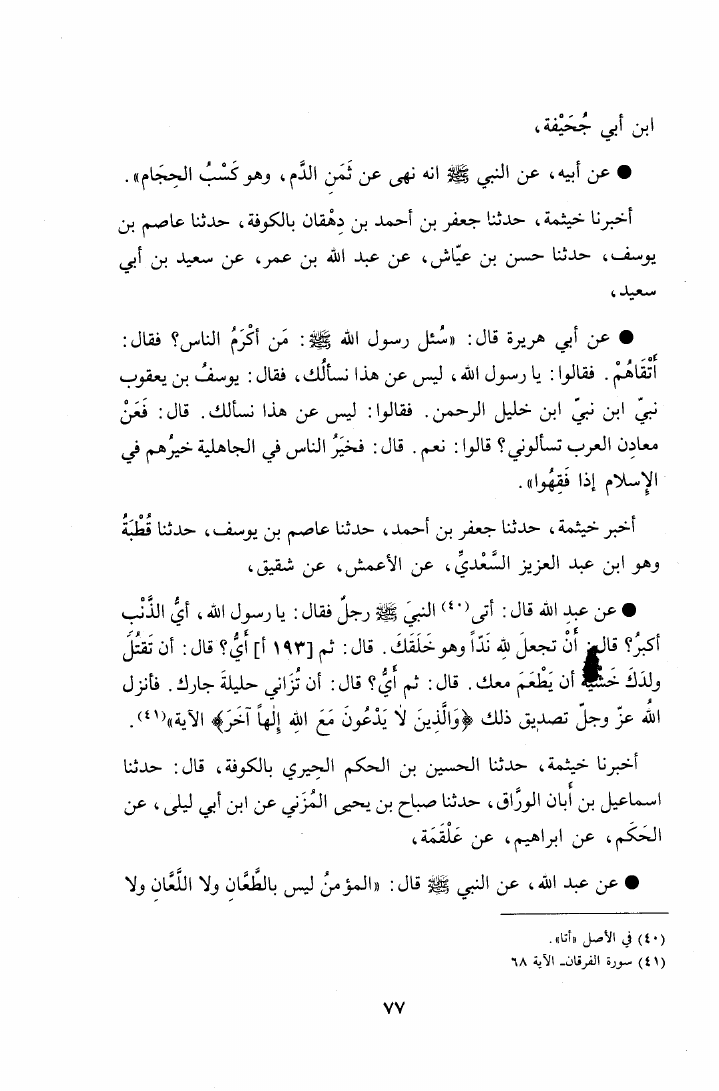 ابن أبي جُحَيْفة،
● عن أبيه، عن النبي ﷺ انه نهى عن ثَمَنِ الدَّم، وهو كَسْبُ الحِجَام».
أخبرنا خيثمة، حدثنا جعفر بن أحمد بن دِهْقان بالكوفة، حدثنا عاصم بن
يوسف، حدثنا حسن بن عيّاش، عن عبد الله بن عمر، عن سعيد بن أبي
سعيد،
● عن أبي هريرة قال: «سُئل رسول الله ﷺ: مَن أكْرَمُ الناس؟ فقال:
أَتْقَاهُمْ. فقالوا: يا رسول الله، ليس عن هذا نسألُك، فقال: يوسفُ بن يعقوب
نبيّ ابن نبيّ ابن خليل الرحمن. فقالوا: ليس عن هذا نسألك. قال: فَعَنْ
معادِن العرب تسألوني؟ قالوا: نعم. قال: فخيَرُ الناس في الجاهلية خيرُهم في
الإِسلام إذا فَقِهُوا».
أخبر خيثمة، حدثنا جعفر بن أحمد، حدثنا عاصم بن يوسف، حدثنا قُطْبَةُ
وهو ابن عبد العزيز السَّعْديِّ، عن الأعمش، عن شقيق،
● عن عبدِ الله قال: أتى(٤٠) النبيَ ﷺ رجلٌ فقال: يا رسول الله، أيُّ الذَّنْبِ
أكبرُ؟ قال: أَنْ تجعلَ لله نَدّاً وهو خَلَقَكَ. قال: ثم [١٩٣ أ] أَيُّ؟ قال: أن تَقتُلَ
ولدَكَ خَشْيَةَ أن يَطْعَمَ معك. قال: ثم أَيُّ؟ قال: أن تُزَاني حليلةَ جارك. فأنزل
اللهُ عزّ وجلّ تصديق ذلك ﴿وَالَّذِينَ لاَ يَدْعُونَ مَعَ اللهِ إِلٰهاً آخَرَ﴾ الآية»(٤١).
أخبرنا خيثمة، حدثنا الحسين بن الحكم الحِيري بالكوفة، قال: حدثنا
اسماعيل بن أَبان الورَّاق، حدثنا صباح بن يحيى المُزَني عن ابن أبي ليلى، عن
الحَكَم، عن ابراهيم، عن عَلْقَمَة،
● عن عبد الله، عن النبي ﷺ قال: «المؤمنُ ليس بالطَّعَّانِ ولا اللَّعَّانِ ولا
(٤٠) في الأصل «أتا».
(٤١) سورة الفرقان- الآية ٦٨
٧٧